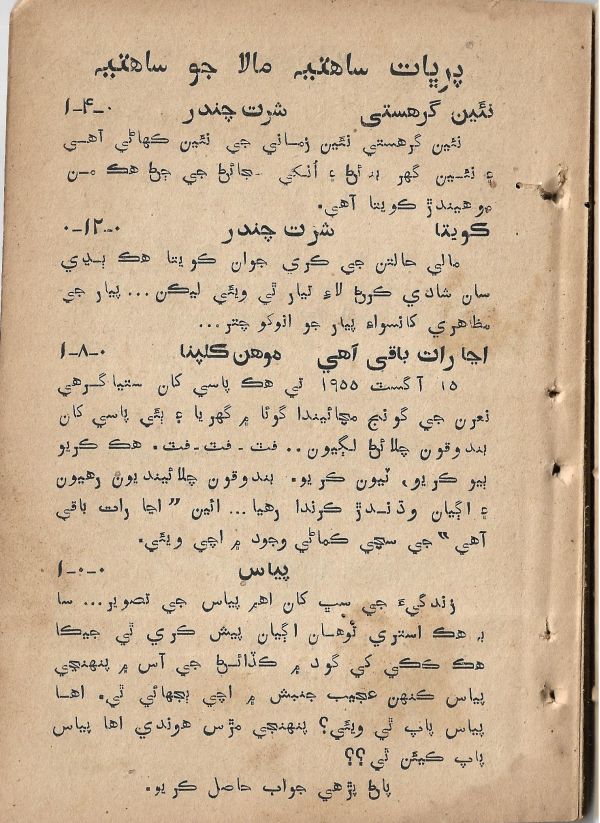 پرڀات ساهتيہ مالا جو ساهتيہ
نئين گرهستي شرت چندر ٠-۴-١
نئين گرهستي نئين زماني جي نئين ڪهاڻي آهي
۽ نئين گهر بڻڻ ۽ اُنکي بڻائڻ جي ڄڻ هڪ من
موهيندڙ ڪويتا آهي.
ڪويتا شرت چندر ٠-١٢-٠
مالي حالتن جي ڪري جوان ڪويتا هڪ ٻڍي
سان شادي ڪرڻ لاءِ تيار ٿي ويئي ليڪن... پيار جي
مظاهري کانسواءِ پيار جو انوکو چتر...
اڃا رات باقي آهي موهن ڪلپنا ٠-٨-١
١٥ آگسٽ ١٩٥٥ تي هڪ پاسي کان ستياگرهي
نعرن جي گونج مچائيندا گوئا ۾ گهريا ۽ ٻئي پاسي کان
بندوقون چلائڻ لڳيون.. ٺٺ - ٺٺ - ٺٺ. هڪ ڪريو
ٻيو ڪريو، ٽيون ڪريو. بندوقون چلائينديون رهيون
۽ اڳيان وڌندڙ ڪرندا رهيا... ائين ”اڃا رات باقي
آهي“ جي سچي ڪهاڻي وجود ۾ اچي ويئي.
پياس ٠-٠-١
زندگيءَ جي سڀ کان اهم پياس جي تصوير... سا
بہ هڪ استري توهان اڳيان پيش ڪري ٿي جيڪا
هڪ ڪڪي کي گود ۾ کڏائڻ جي آس ۾ پنهنجي
پياس ڪنهن عجيب جنبش ۾ اچي ٻجهائي ٿي. اها
پياس پاپ ٿي ويئي؟ پنهنجي مڙس هوندي اها پياس
پاپ ڪيئن ٿي؟؟
پاڻ پڙهي جواب حاصل ڪريو.